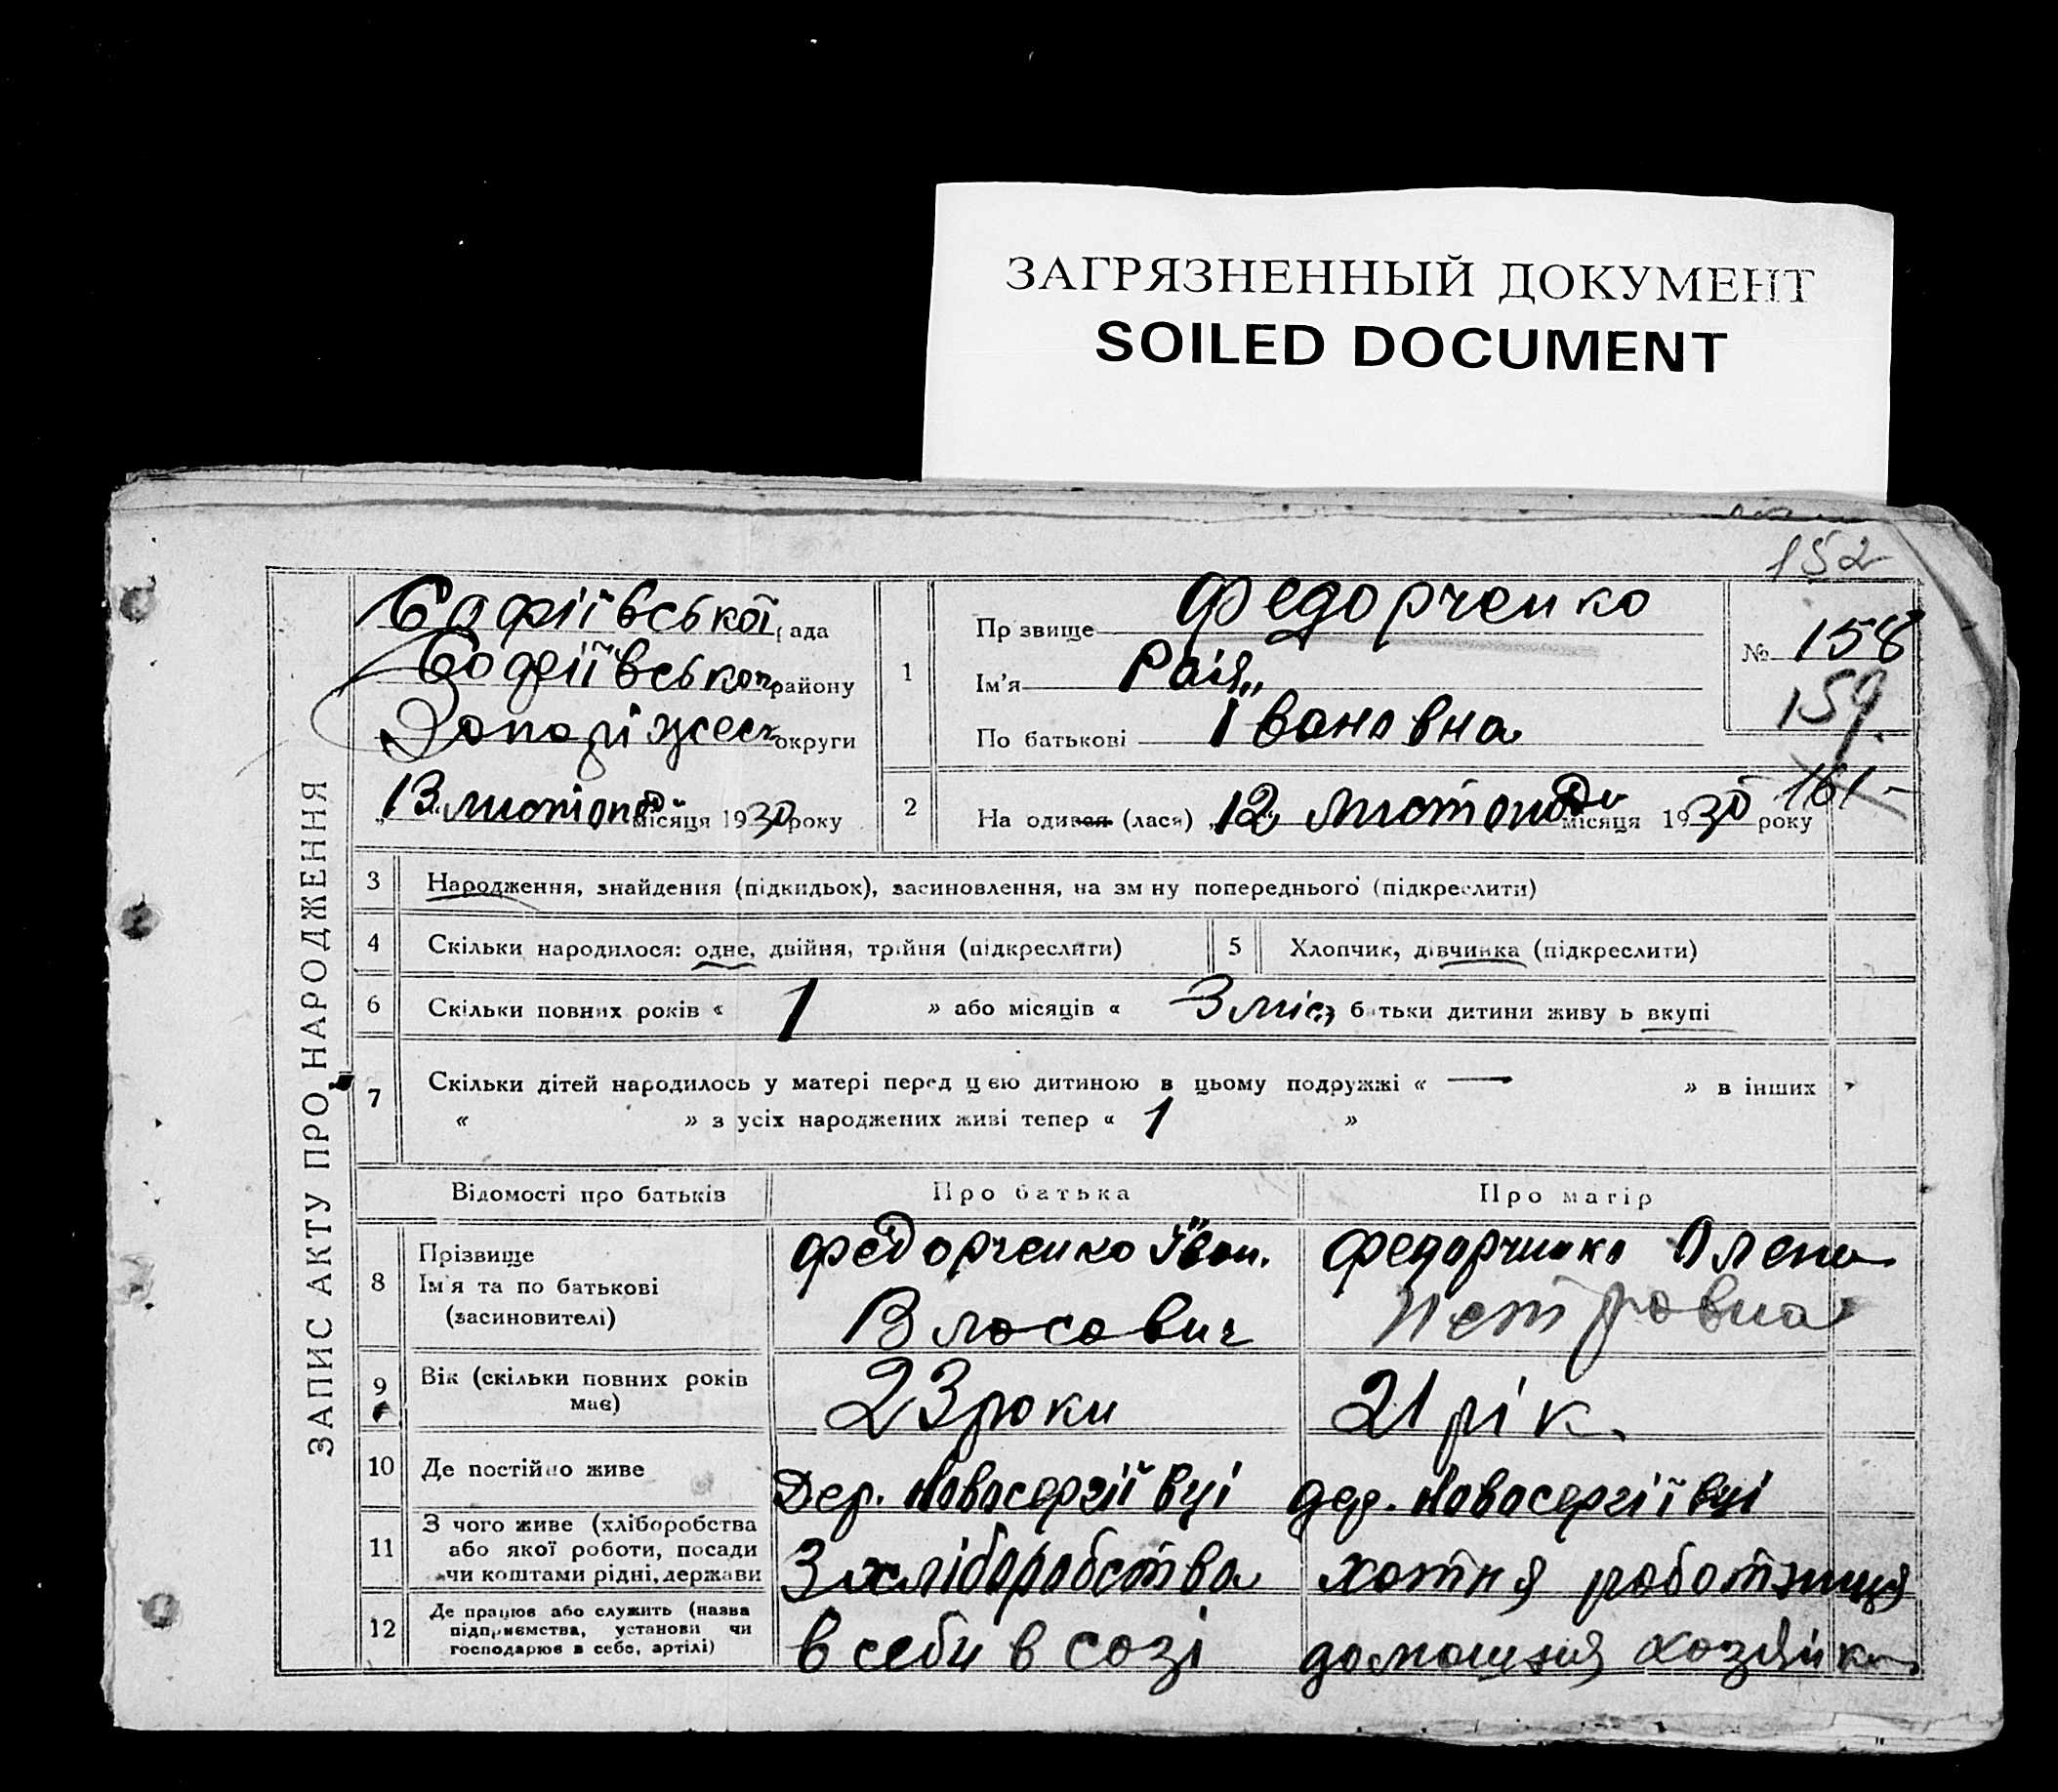 ЗАГРЯЗНЕННЫЙ ДОКУМЕНТ
SOILED DOCUMENT
152
ЗАПИС АКТУ ПРО НАРОДЖЕННЯ
Софіївської рада
Софіївськоп району
Запоріжськ округи
13 листопад місяця 1930 року
1
Прзвище Федорченко
Ім'я Раїя
По батькові Івановна
№ 158
159.
161
2
На одиная (лася) 12 листопада місяця 1930 року
3 Народження, знайдення (підкидьок), засиновлення, на зм ну попереднього (підкреслити)
4 Скільки народилося: одне, двійня, трійня (підкреслити)
5 Хлопчик, дівчинка (підкреслити)
6 Скільки повних років « 1 » або місяців « 3 міс. б тьки дитини живу ь вкупі
7 Скільки дітей народилось у матері перед цією дитиною в цьому подружжі « — » в інших
« » з усіх народжених живі тепер « 1 »
Відомості про батьків Про батька Про матір
8 Прізвище
Ім'я та по батькові
(засиновителі)
Федорченко Іван.
Власович
Федорченко Олена
Петровна
9 Вік (скільки повних років
має)
23 роки
21 рік.
10 Де постійно живе
Дер. Новосергіївці
дер. Новосергіївці
11 З чого живе (хліборобства
або якої роботи, посади
чи коштами рідні, держави
З хліборобства
хатня работниця
12 Де працює або служить (назва
підприємства, установи чи
господарює в себе, артілі)
в себи в созі
домашняя хозяйка